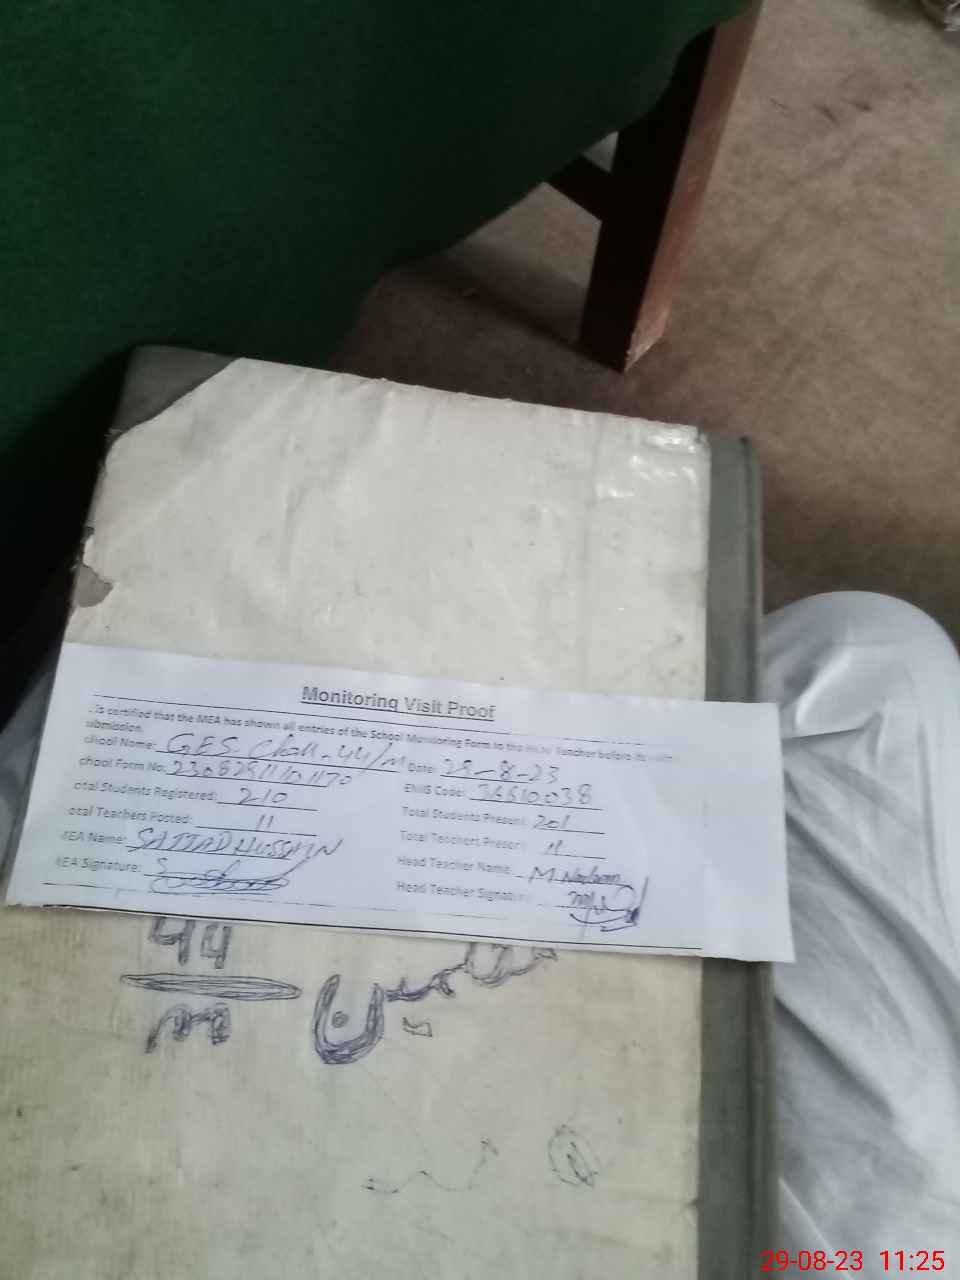 Monitoring Visit Proof
is certified that the MEA has shown all entries of the School Monitoring Form to the Head Teacher before its
ubmission.
chool Name: G.E.S. Chak-44/M Date: 29-8-23
chool Form No: EMIS Code: 36610038
otal Students Registered: 210 Total Students Present: 201
otal Teachers Posted: 11 Total Teachers Present 11
MEA Name: SAJJAD HUSSAIN Head Teacher Name: M. Nadeem
MEA Signature: Head Teacher Signatu
44
M
29-08-23 11:25